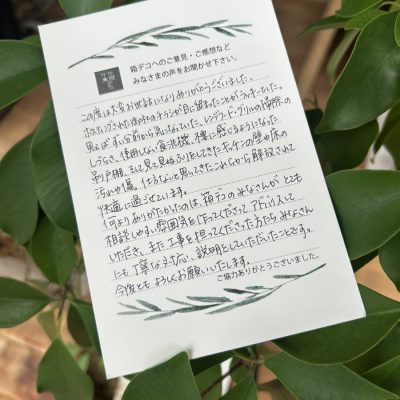 箱デコへのご意見・ご感想など
みなさまの声をお聞かせ下さい。
この度は大変お世話になりありがとうございました。
ポスティングされた御社のチラシが目に留まったことがラッキーでした。
思えば ずい分前から気になっていた、レンジフード・グリルの掃除の
しづらさ、使用しない食洗機、不便に感じるようになった
吊り戸棚、そして見て見ぬふりをしてきたキッチンの壁や床の
汚れや傷。仕方ないと思ってきたこれらから解放されて
快適に過ごせています。
何よりありがたかったのは、箱デコのみなさんが とても
相談しやすい雰囲気を作ってくださって アドバイスして
いただき、また 工事を担ってくださった方たち みなさん
にも 丁寧な対応、説明をしていただいたことです。
今後とも よろしくお願いいたします。
ご協力ありがとうございました。